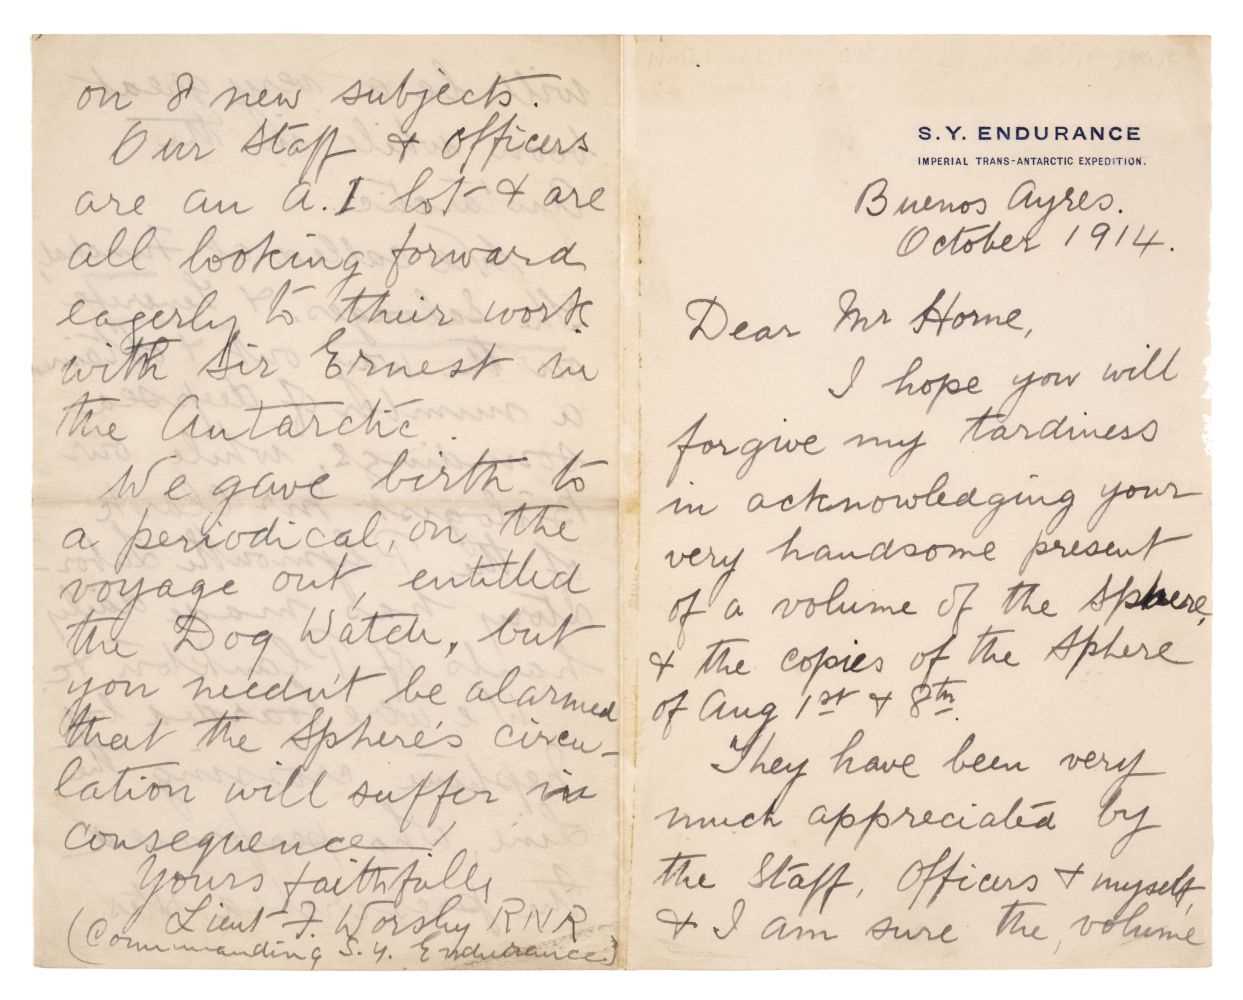 S.Y. ENDURANCE
IMPERIAL TRANS-ANTARCTIC EXPEDITION.
Buenos Ayres.
October 1914.
Dear Mr Horne,
I hope you will
forgive my tardiness
in acknowledging your
very handsome present
of a volume of the Sphere,
& the copies of the Sphere
of Aug 1st & 8th.
They have been very
much appreciated by
the Staff, Officers & myself,
& I am sure the, volume
on 8 new subjects.
Our Staff & Officers
are an A.1 lot & are
all looking forward
eagerly to their work
with Sir Ernest in
the Antarctic.
We gave birth to
a periodical, on the
voyage out, entitled
the Dog Watch, but
you needn't be alarmed
that the Sphere's circu-
lation will suffer in
consequence!
Yours faithfully
Lieut F. Worsley RNR
(Commanding S.Y. Endurance.)